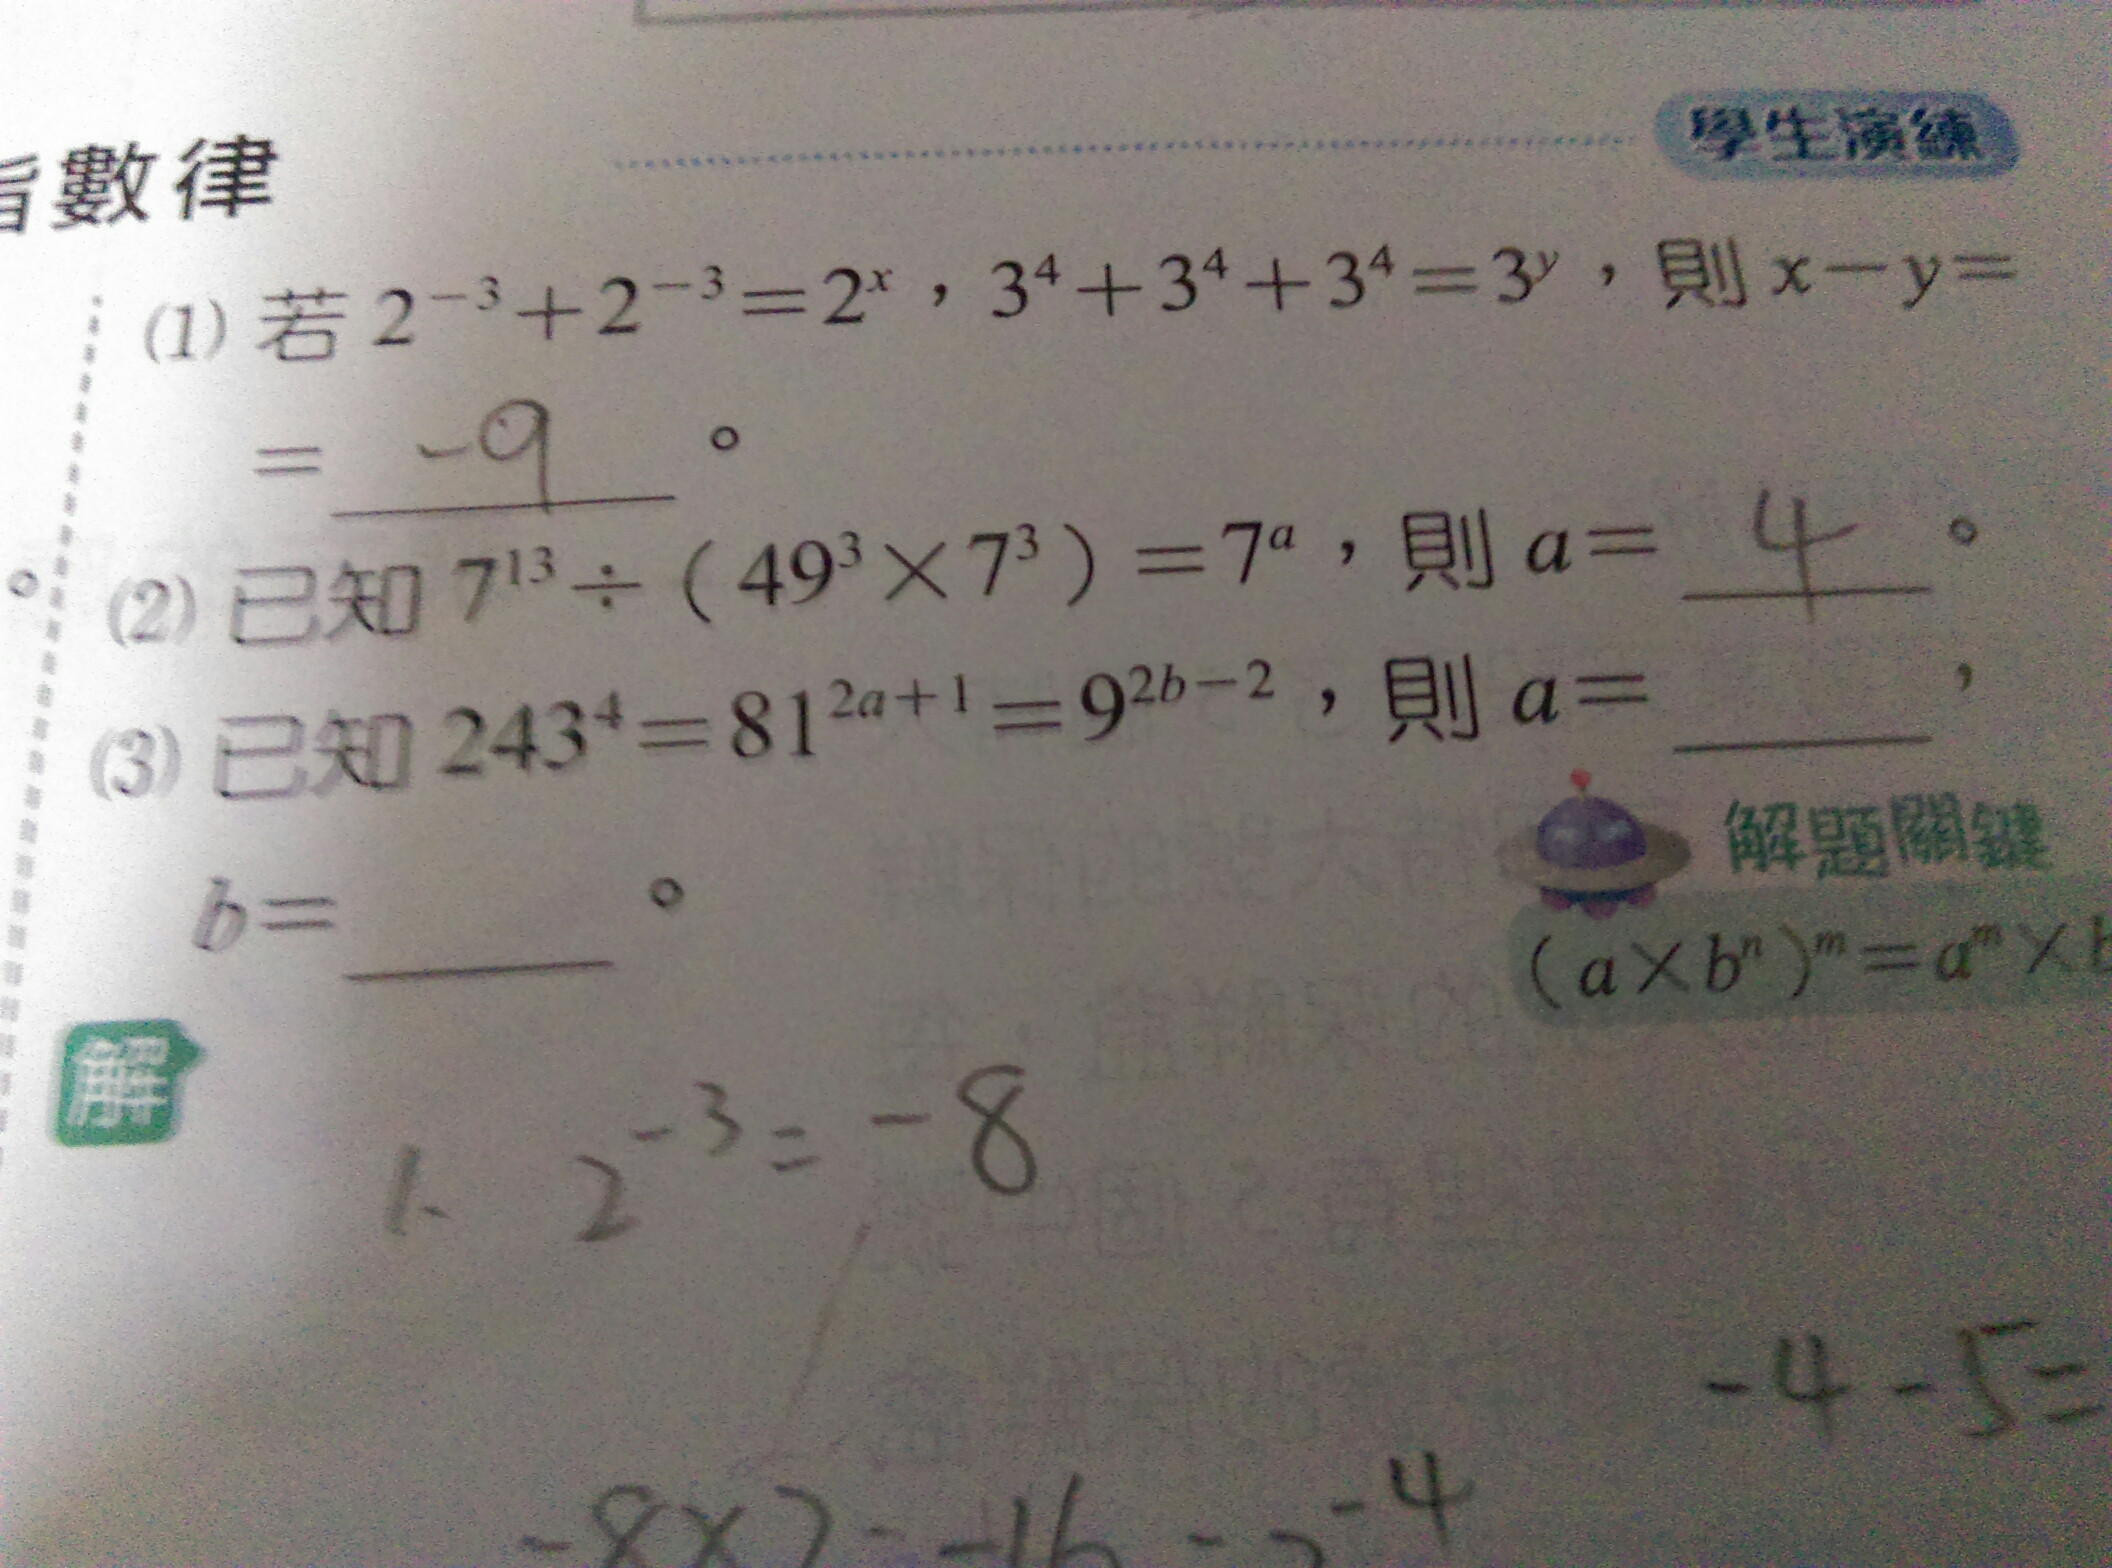 數律
學生演練
(1) 若 2⁻³+2⁻³=2ˣ，3⁴+3⁴+3⁴=3ʸ，則 x−y=
= -9 。
(2) 已知 7¹³÷（49³×7³）=7ᵃ，則 a= 4 。
(3) 已知 243⁴=81²ᵃ⁺¹=9²ᵇ⁻²，則 a= ，
b= 。
解題關鍵
（a×bⁿ）ᵐ=aᵐ×b
解
1. 2⁻³= -8
-4-5=
-8×2=-16=2⁻⁴